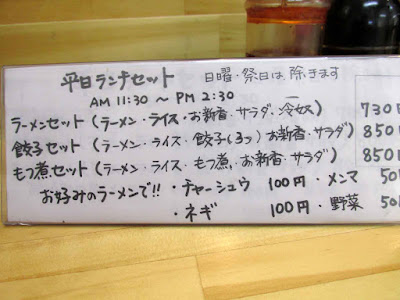 平日ランチセット 日曜・祭日は除きます
AM 11:30 ～ PM 2:30
ラーメンセット(ラーメン・ライス・お新香・サラダ・冷奴) 730
餃子セット(ラーメン・ライス・餃子(3つ)お新香・サラダ) 850
もつ煮セット(ラーメン・ライス・もつ煮,お新香・サラダ) 850
お好みのラーメンで!!・チャーシュウ 100円・メンマ 50
・ネギ 100円・野菜 50